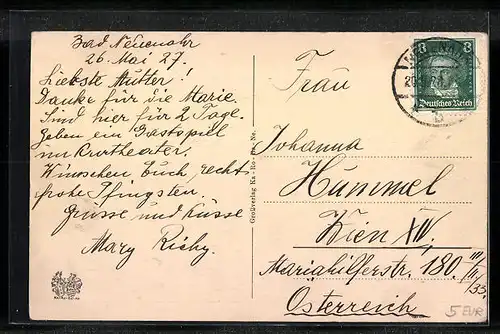 Bad Neuenahr
26. Mai 27.
Liebste Mutter!
Danke für die Marie.
Sind hier für 2 Tage.
Geben ein Gastspiel
im Kurtheater.
Wünschen Euch recht
frohe Pfingsten.
Grüsse und Küsse
Mary Richy.
Großverlag Ka-Ro-
Frau
Johanna
Hummel
Wien XIV,
Mariahilferstr. 180. III/II/33.
Österreich
8 8
Deutsches Reich
5 EUR